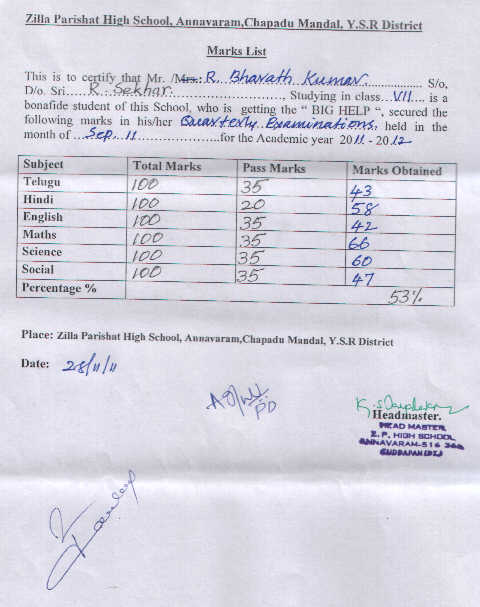 Zilla Parishat High School, Annavaram,Chapadu Mandal, Y.S.R District
Marks List
This is to certify that Mr. /Mrs.: R. Bharath Kumar................ S/o,
D/o. Sri.....R. Sekhar............................, Studying in class...VII.... is a
bonafide student of this School, who is getting the " BIG HELP ", secured the
following marks in his/her Quarterly Examinations, held in the
month of ...Sep. 11.......................for the Academic year 2011 - 2012
Subject Total Marks Pass Marks Marks Obtained
Telugu 100 35 43
Hindi 100 20 58
English 100 35 42
Maths 100 35 66
Science 100 35 60
Social 100 35 47
Percentage % 53%
Place: Zilla Parishat High School, Annavaram,Chapadu Mandal, Y.S.R District
Date: 28/11/11
PD
Headmaster.
HEAD MASTER
Z. P. HIGH SCHOOL
ANNAVARAM-516
CUDDAPAH (DT)